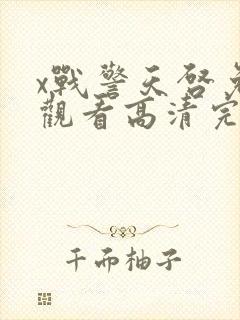 x戰警天啓免
觀看高清完
千而柚子